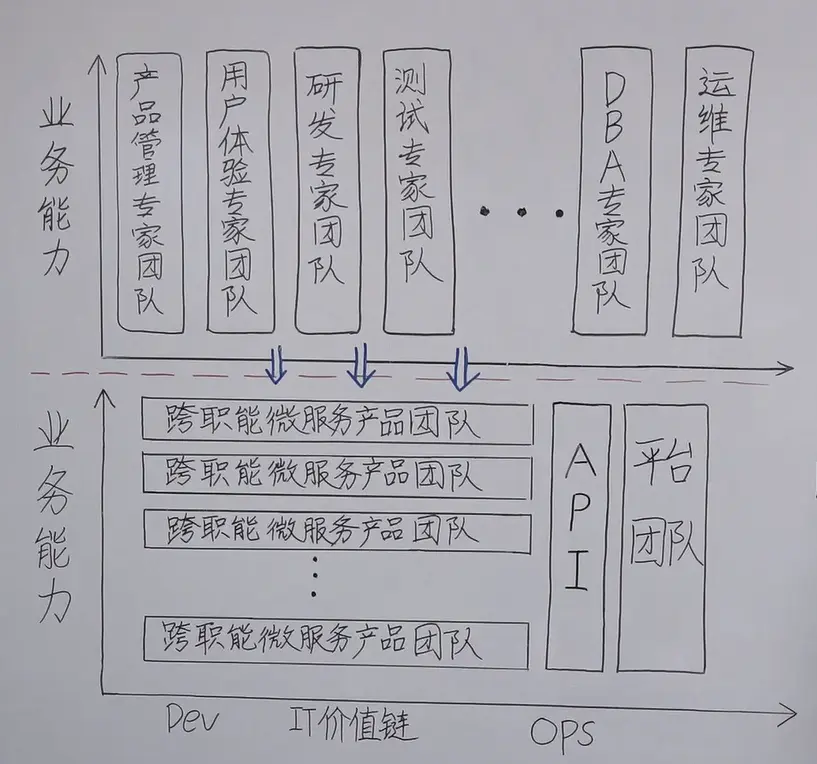 业务能力
产品管理专家团队
用户体验专家团队
研发专家团队
测试专家团队
DBA专家团队
运维专家团队
业务能力
跨职能微服务产品团队
跨职能微服务产品团队
跨职能微服务产品团队
跨职能微服务产品团队
API
平台
团队
Dev
IT价值链
OPS